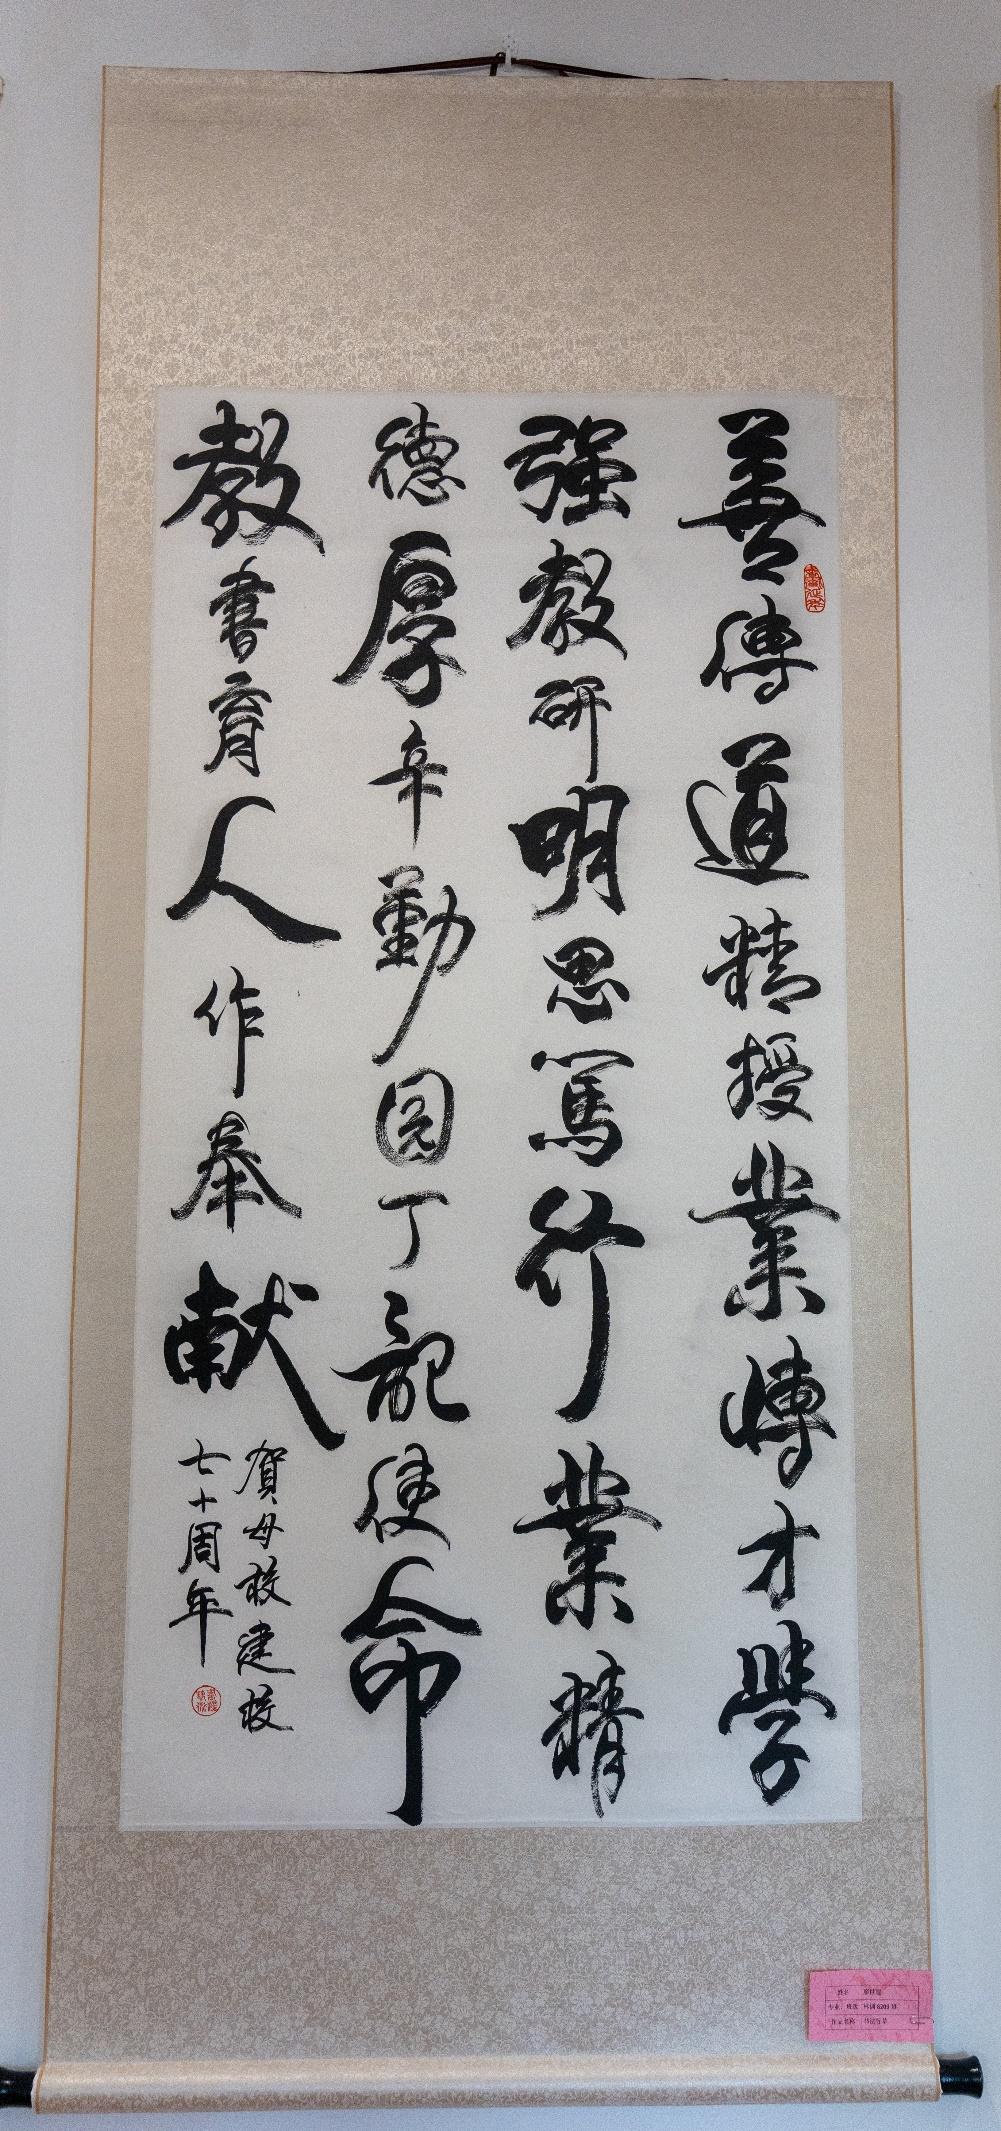 善傳道精授業博才學
强教研明思篤行業精
德厚辛勤园丁記使命
教書育人作奉献
賀母校建校
七十周年